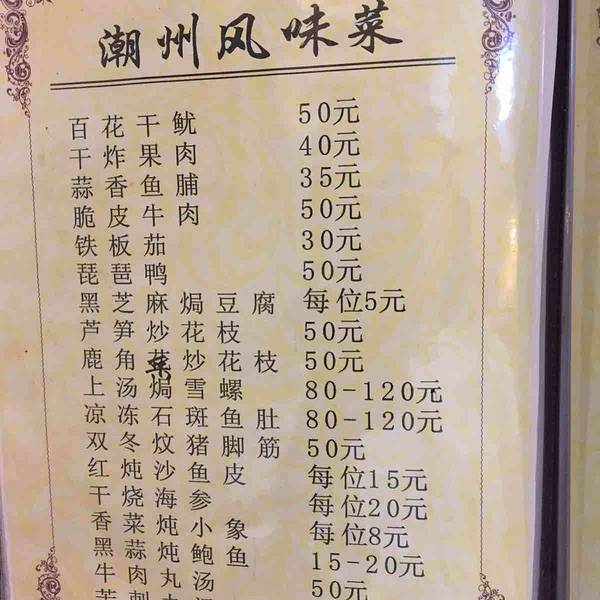 潮州风味菜
百花干鱿 50元
干炸果肉 40元
蒜香鱼脯 35元
脆皮牛肉 50元
铁板茄 30元
琵琶鸭 50元
黑芝麻焗豆腐 每位5元
芦笋炒花枝 50元
鹿角菜炒花枝 50元
上汤焗雪螺 80-120元
凉冻石斑鱼肚 80-120元
双冬炆猪脚筋 50元
红炖沙鱼皮 每位15元
干烧海参 每位20元
香菜炖小象 每位8元
黑蒜炖鲍鱼 15-20元
牛肉丸汤 50元